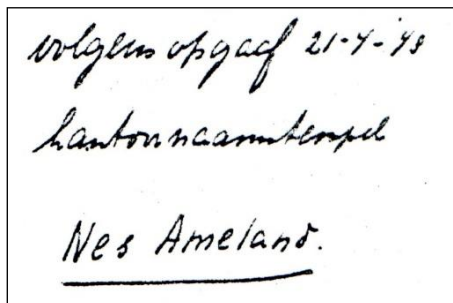 volgens opgaaf 21-4-48
kantoornaamstempel
Nes Ameland.